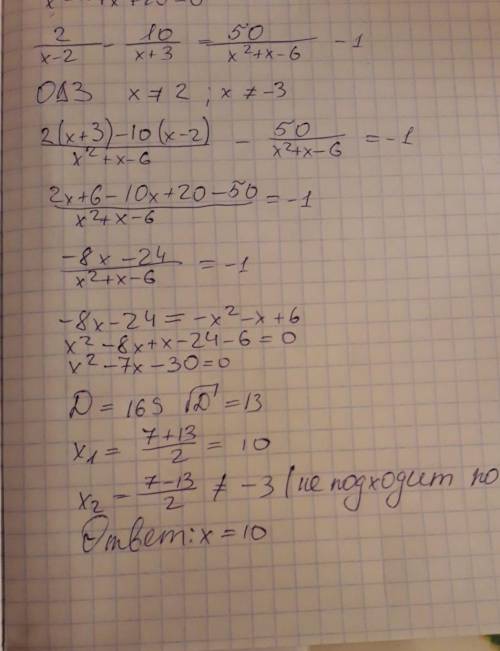 2/(x-2) - 10/(x+3) = 50/(x²+x-6) - 1
ОДЗ x ≠ 2 ; x ≠ -3
(2(x+3)-10(x-2))/(x²+x-6) - 50/(x²+x-6) = -1
(2x+6-10x+20-50)/(x²+x-6) = -1
(-8x-24)/(x²+x-6) = -1
-8x-24 = -x²-x+6
x²-8x+x-24-6=0
x²-7x-30=0
D = 169 √D = 13
x₁ = (7+13)/2 = 10
x₂ = (7-13)/2 ≠ -3 (не подходит по
Ответ: x = 10